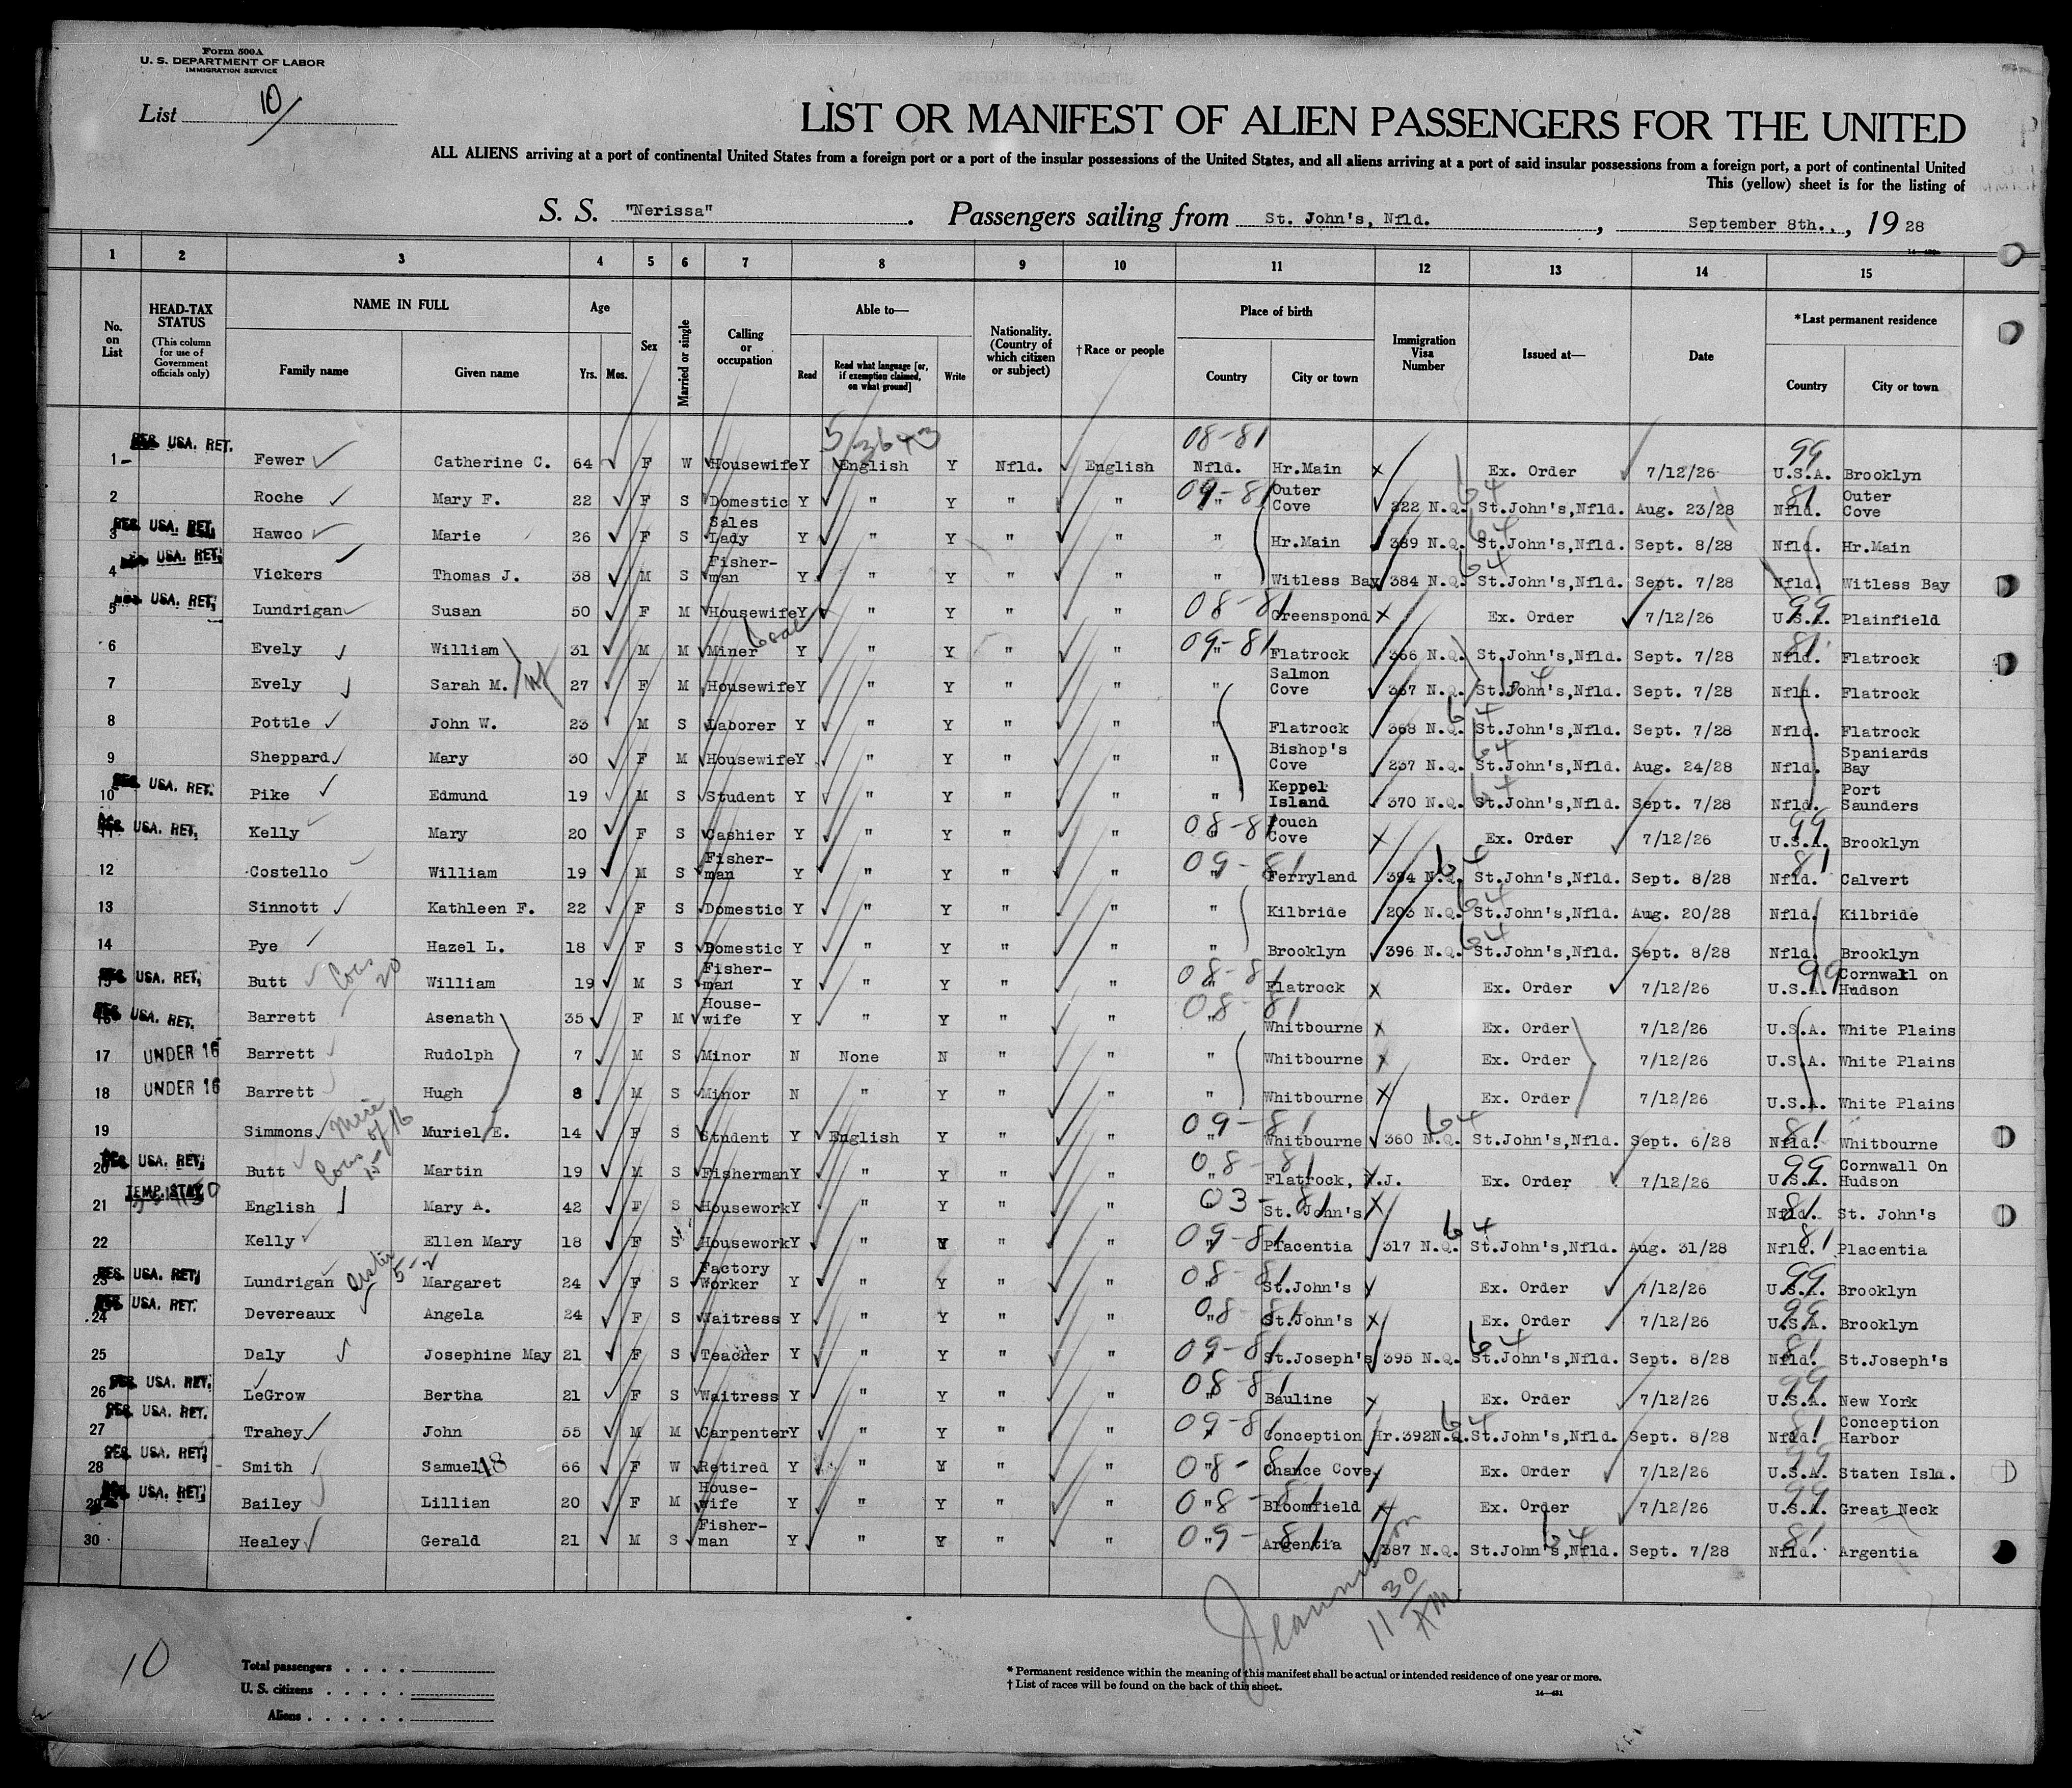 Form 500A
U. S. DEPARTMENT OF LABOR
IMMIGRATION SERVICE
List 10
LIST OR MANIFEST OF ALIEN PASSENGERS FOR THE UNITED
ALL ALIENS arriving at a port of continental United States from a foreign port or a port of the insular possessions of the United States, and all aliens arriving at a port of said insular possessions from a foreign port, a port of continental United
This (yellow) sheet is for the listing of
S. S. "Nerissa". Passengers sailing from St. John's, Nfld., September 8th., 19 28
1 2 3 4 5 6 7 8 9 10 11 12 13 14 15
No. on List
HEAD-TAX STATUS
(This column for use of Government officials only)
NAME IN FULL
Family name
Given name
Age
Yrs. Mos.
Sex
Married or single
Calling or occupation
Able to—
Read
Read what language [or, if exemption claimed, on what ground]
Write
Nationality. (Country of which citizen or subject)
† Race or people
Place of birth
Country
City or town
Immigration Visa Number
Issued at—
Date
* Last permanent residence
Country
City or town
53643
1 USA. RET. Fewer Catherine C. 64 F W Housewife Y English Y Nfld. English 08-81 Nfld. Hr.Main X Ex. Order 7/12/26 99 U.S.A. Brooklyn
2 Roche Mary F. 22 F S Domestic Y " Y " " 09-81 " Outer Cove 222 N.Q. 64 St.John's,Nfld. Aug. 23/28 81 Nfld. Outer Cove
3 USA. RET. Hawco Marie 26 F S Sales Lady Y " Y " " " Hr.Main 389 N.Q. 64 St.John's,Nfld. Sept. 8/28 Nfld. Hr.Main
4 USA. RET. Vickers Thomas J. 38 M S Fisher-man Y " Y " " " Witless Bay 384 N.Q. 64 St.John's,Nfld. Sept. 7/28 Nfld. Witless Bay
5 USA. RET. Lundrigan Susan 50 F M Housewife Y " Y " " 08-81 Greenspond X Ex. Order 7/12/26 99 U.S.A. Plainfield
6 Evely William 31 M M Miner Coal Y " Y " " 09-81 " Flatrock 366 N.Q. St.John's,Nfld. Sept. 7/28 81 Nfld. Flatrock
7 Evely Sarah M. 27 F M Housewife Y " Y " " " Salmon Cove 367 N.Q. 64 St.John's,Nfld. Sept. 7/28 Nfld. Flatrock
8 Pottle John W. 23 M S Laborer Y " Y " " " Flatrock 368 N.Q. 64 St.John's,Nfld. Sept. 7/28 Nfld. Flatrock
9 Sheppard Mary 30 F M Housewife Y " Y " " " Bishop's Cove 237 N.Q. 64 St.John's,Nfld. Aug. 24/28 Nfld. Spaniards Bay
10 USA. RET. Pike Edmund 19 M S Student Y " Y " " " Keppel Island 370 N.Q. 64 St.John's,Nfld. Sept. 7/28 Nfld. Port Saunders
11 USA. RET. Kelly Mary 20 F S Cashier Y " Y " " 08-81 " Pouch Cove X Ex. Order 7/12/26 99 U.S.A. Brooklyn
12 Costello William 19 M S Fisher-man Y " Y " " 09-81 " Ferryland 394 N.Q. 64 St.John's,Nfld. Sept. 8/28 81 Nfld. Calvert
13 Sinnott Kathleen F. 22 F S Domestic Y " Y " " " Kilbride 203 N.Q. 64 St.John's,Nfld. Aug. 20/28 Nfld. Kilbride
14 Pye Hazel L. 18 F S Domestic Y " Y " " " Brooklyn 396 N.Q. 64 St.John's,Nfld. Sept. 8/28 Nfld. Brooklyn
15 USA. RET. Butt Cous 20 William 19 M S Fisher-man Y " Y " " 08-81 " Flatrock X Ex. Order 7/12/26 99 U.S.A. Cornwall on Hudson
16 USA. RET. Barrett Asenath 35 F M House-wife Y " Y " " 08-81 " Whitbourne X Ex. Order 7/12/26 U.S.A. White Plains
17 UNDER 16 Barrett Rudolph 7 M S Minor N None N " " " Whitbourne X Ex. Order 7/12/26 U.S.A. White Plains
18 UNDER 16 Barrett Hugh 8 M S Minor N " Y " " " Whitbourne X Ex. Order 7/12/26 U.S.A. White Plains
19 Simmons Niece of 16 Muriel E. 14 F S Student Y English Y " " 09-81 " Whitbourne 360 N.Q. 64 St.John's,Nfld. Sept. 6/28 81 Nfld. Whitbourne
20 USA. RET. Butt Cous 15 Martin 19 M S Fisherman Y " Y " " 08-81 " Flatrock, X.J. Ex. Order 7/12/26 99 U.S.A. Cornwall On Hudson
21 TEMP. STAY English Mary A. 42 F S Housework Y " Y " " 03-81 St. John's X 81 Nfld. St. John's
22 Kelly Ellen Mary 18 F S Housework Y " Y " " 09-81 " Placentia 317 N.Q. 64 St.John's,Nfld. Aug. 31/28 81 Nfld. Placentia
23 USA. RET. Lundrigan Margaret 24 F S Factory Worker Y " Y " " 08-81 " St.John's X Ex. Order 7/12/26 99 U.S.A. Brooklyn
24 USA. RET. Devereaux Angela 24 F S Waitress Y " Y " " 08-81 " St.John's X Ex. Order 7/12/26 99 U.S.A. Brooklyn
25 Daly Josephine May 21 F S Teacher Y " Y " " 09-81 " St.Joseph's 395 N.Q. 64 St.John's,Nfld. Sept. 8/28 81 Nfld. St.Joseph's
26 USA. RET. LeGrow Bertha 21 F S Waitress Y " Y " " 08-81 " Bauline X Ex. Order 7/12/26 99 U.S.A. New York
27 USA. RET. Trahey John 55 M M Carpenter Y " Y " " 09-81 " Conception Hr. 392 N.Q. 64 St.John's,Nfld. Sept. 8/28 81 Nfld. Conception Harbor
28 USA. RET. Smith Samuel 48 66 F W Retired Y " Y " " 08-81 " Chance Cove X Ex. Order 7/12/26 99 U.S.A. Staten Isln.
29 USA. RET. Bailey Lillian 20 F M House-wife Y " Y " " 08-81 " Bloomfield X Ex. Order 7/12/26 99 U.S.A. Great Neck
30 Healey Gerald 21 M S Fisher-man Y " Y " " 09-81 " Argentia 387 N.Q. 64 St.John's,Nfld. Sept. 7/28 81 Nfld. Argentia
11 30 AM
10
Total passengers . . . .
U. S. citizens . . . . .
Aliens . . . . . .
* Permanent residence within the meaning of this manifest shall be actual or intended residence of one year or more.
† List of races will be found on the back of this sheet.
14—431